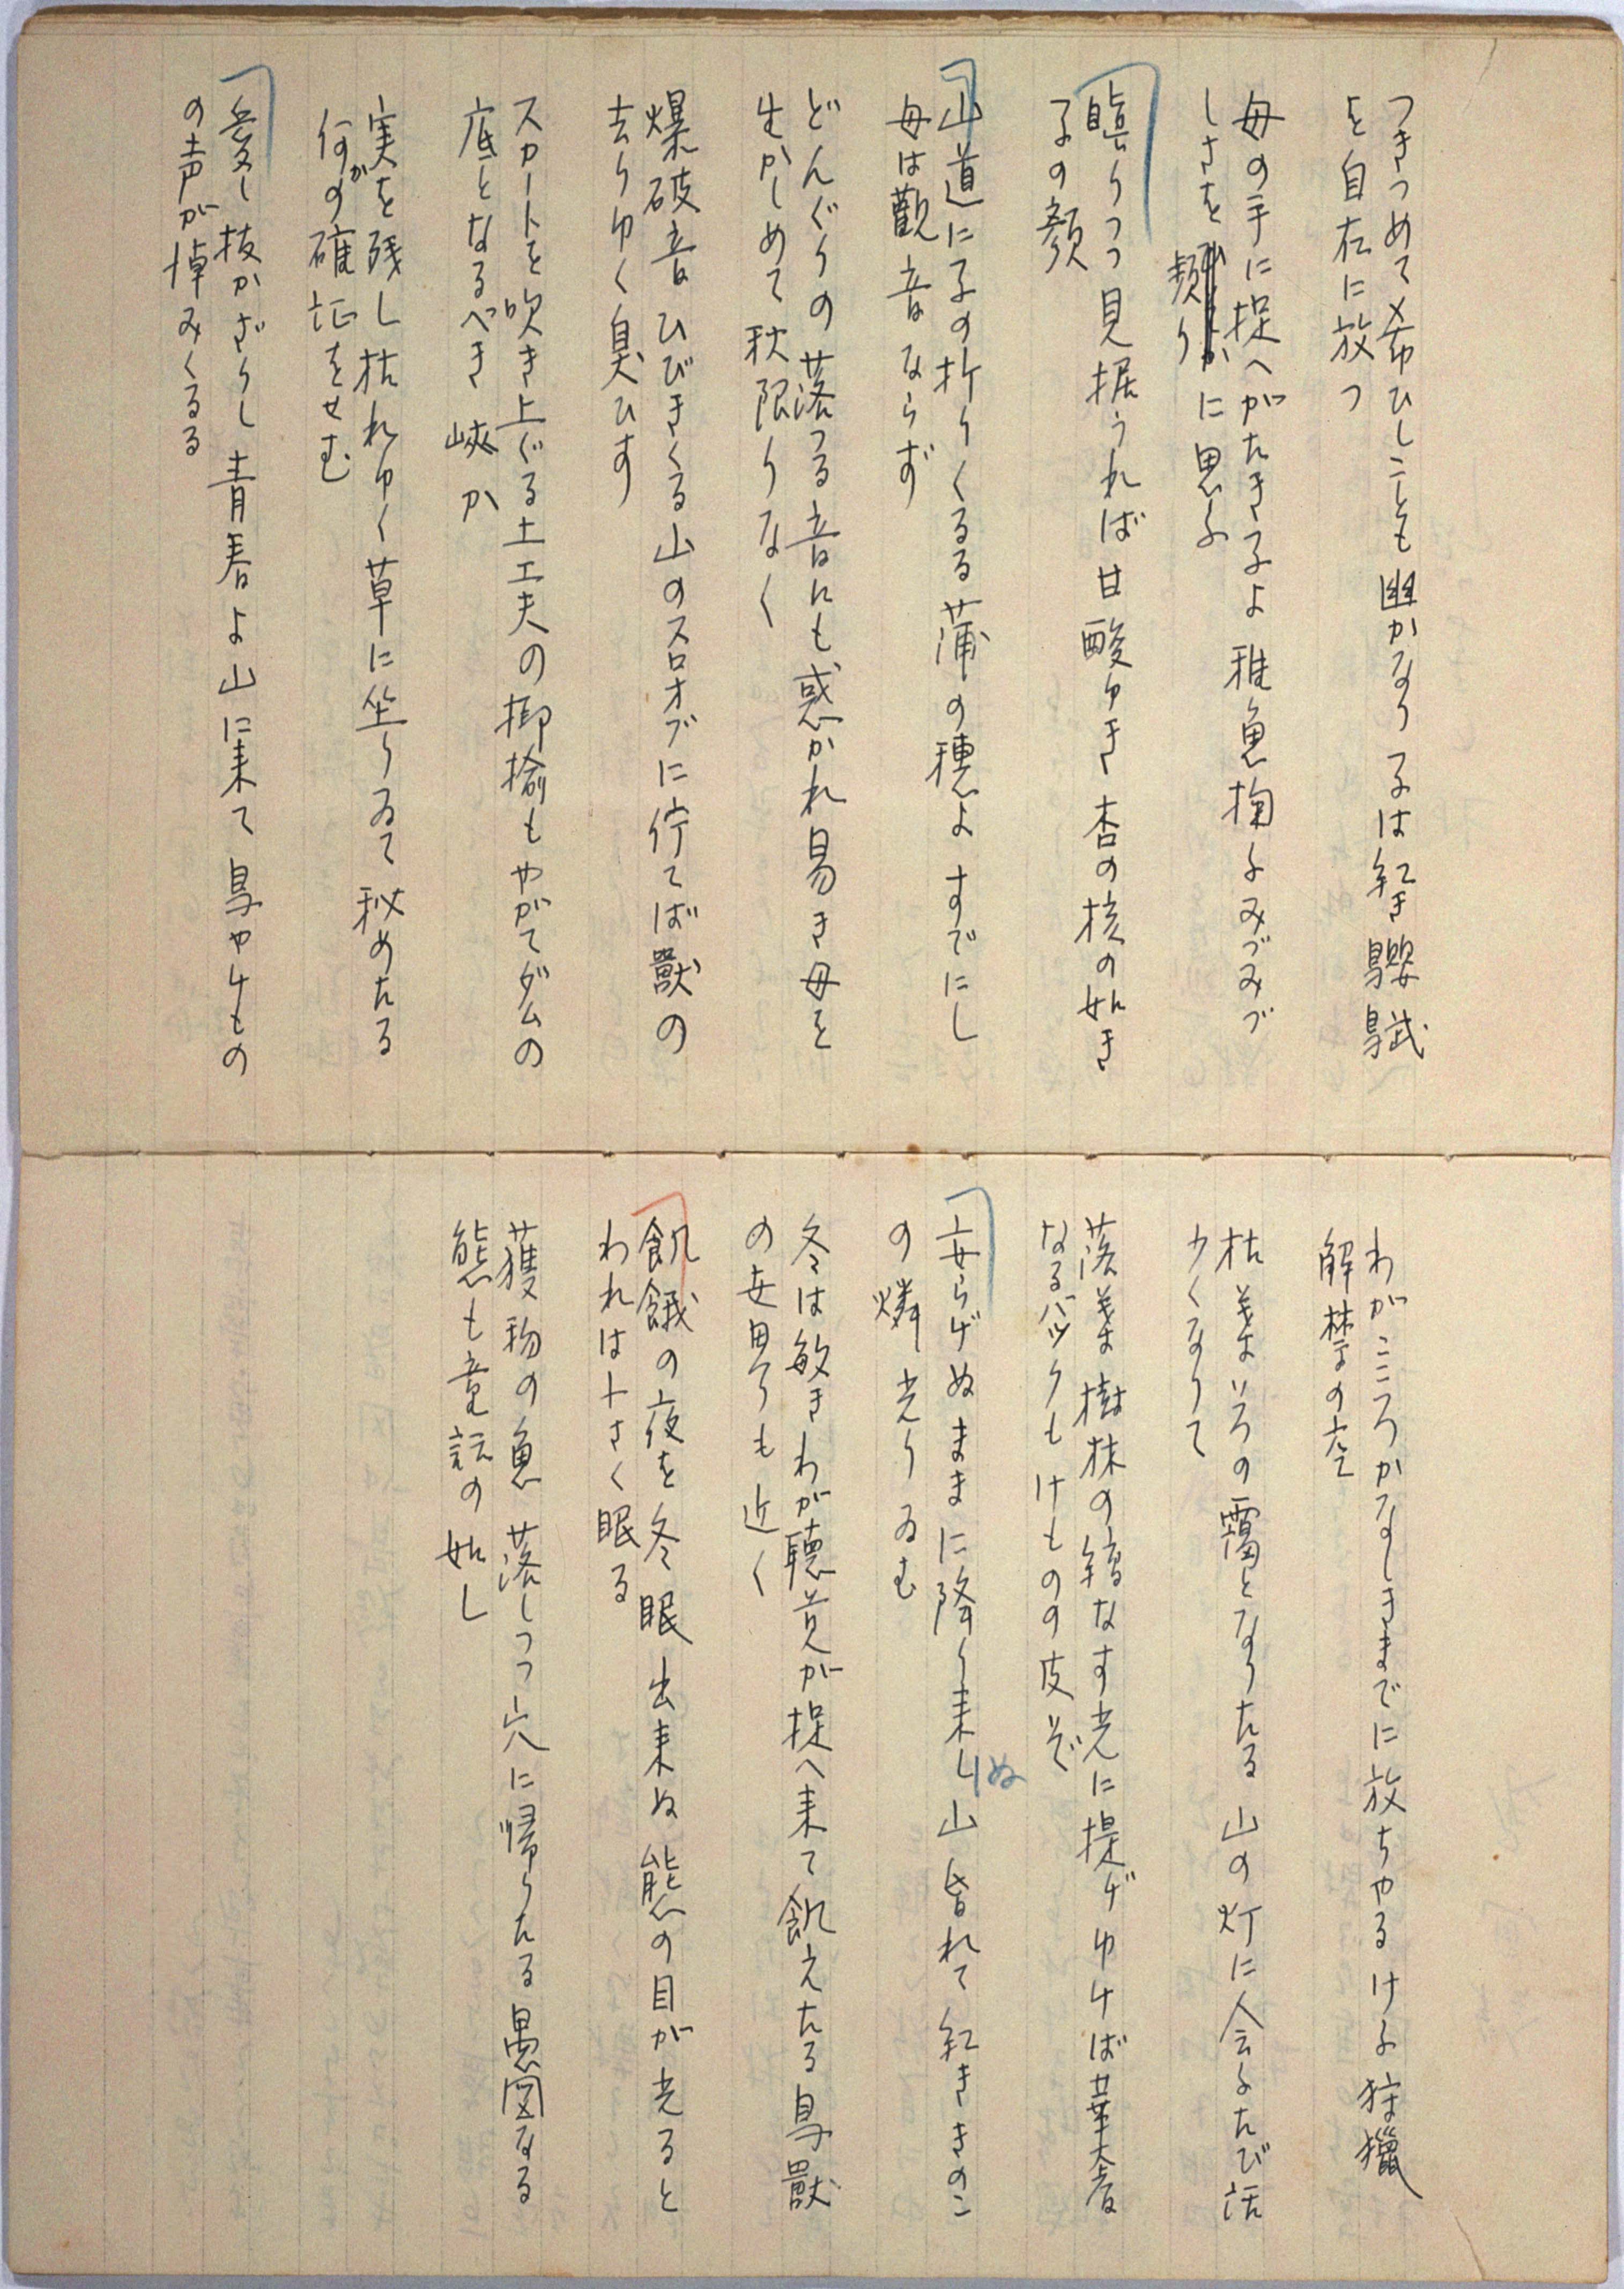 つきつめて希ひしことも幽かなり子は紅き鸚鵡
を自在に放つ
母の手に捉へがたき子よ稚魚掬ふみづみづ
しさを頻りに思ふ
瞋りつつ見据うれば甘酸ゆき杏の核の如き
子の顔
山道に子の折りくるる蒲の穂よすでにし
母は観音ならず
どんぐりの落つる音にも惑かれ易き母を
生かしめて秋限りなく
爆破音ひびきくる山のスロオプに佇てば獣の
去りゆく臭ひす
スカートを吹き上ぐる土工夫の揶揄もやがてダムの
底となるべき峡か
実を残し枯れゆく草に坐りゐて秘めたる
何の確証をせむ
が
愛し抜かざりし青春よ山に来て鳥やけもの
の声が悼みくるる
わがこころかなしきまでに放ちやるけふ狩猟
解禁の空
枯葉いろの靄となりたる山の灯に会ふたび話
少くなりて
落葉樹林の縞なす光に提げゆけば華奢
なるバックもけものの皮ぞ
安らげぬままに降り来し山昏れて紅ききのこ
ぬ
の燐光りゐむ
冬は敏きわが聴覚が捉へ来て飢えたる鳥獣
の安男らも近く
飢餓の夜を冬眠出来ぬ熊の目が光ると
われは小さく眠る
獲物の魚落しつつ穴に帰りたる愚図なる
熊も童話の如し